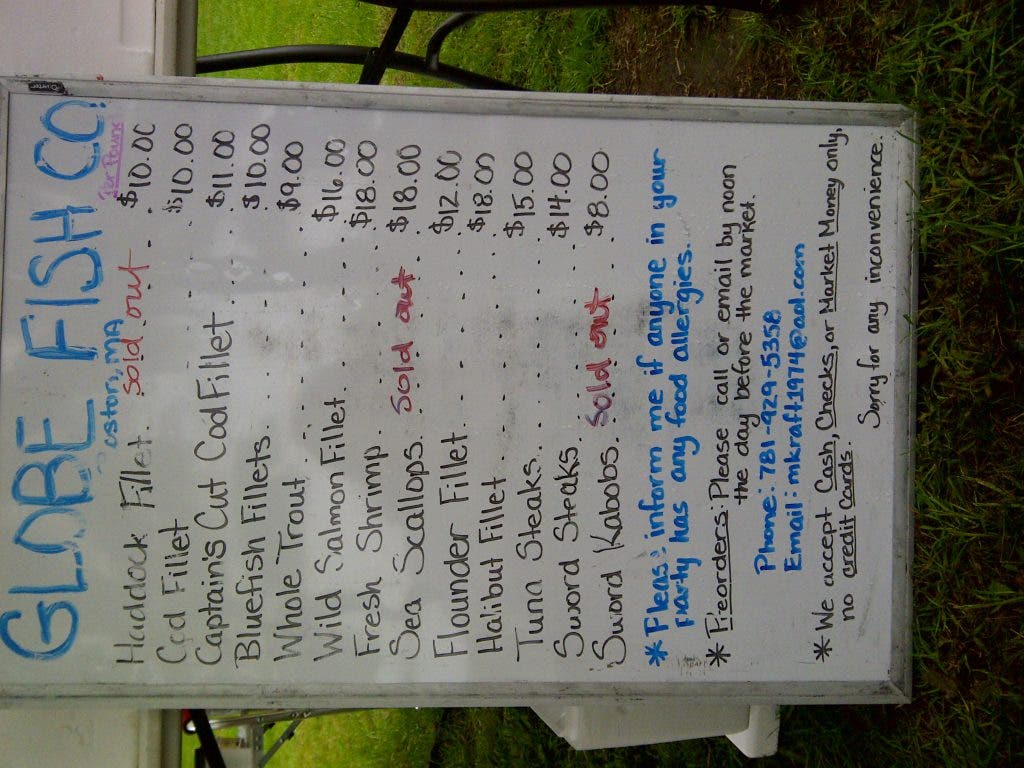 GLOBE FISH CO.
oston, MA
Per Pound
Haddock Fillet. sold out . $10.00
Cod Fillet ............ $10.00
Captain's Cut Cod Fillet ...... $11.00
Bluefish Fillets.......... $10.00
Whole Trout .......... $9.00
Wild Salmon Fillet ...... $16.00
Fresh Shrimp.......... $18.00
Sea Scallops... sold out . $18.00
Flounder Fillet........ $12.00
Halibut Fillet ........ $18.00
Tuna Steaks.......... $15.00
Sword Steaks.......... $14.00
Sword Kabobs. sold out ... $8.00
* Pleas: inform me if anyone in your
party has any food allergies.
* Preorders: Please call or email by noon
the day before the market.
Phone: 781-929-5358
Email: mkraft1974@aol.com
* We accept Cash, Checks, or Market Money only,
no credit cards.
Sorry for any inconvenience.